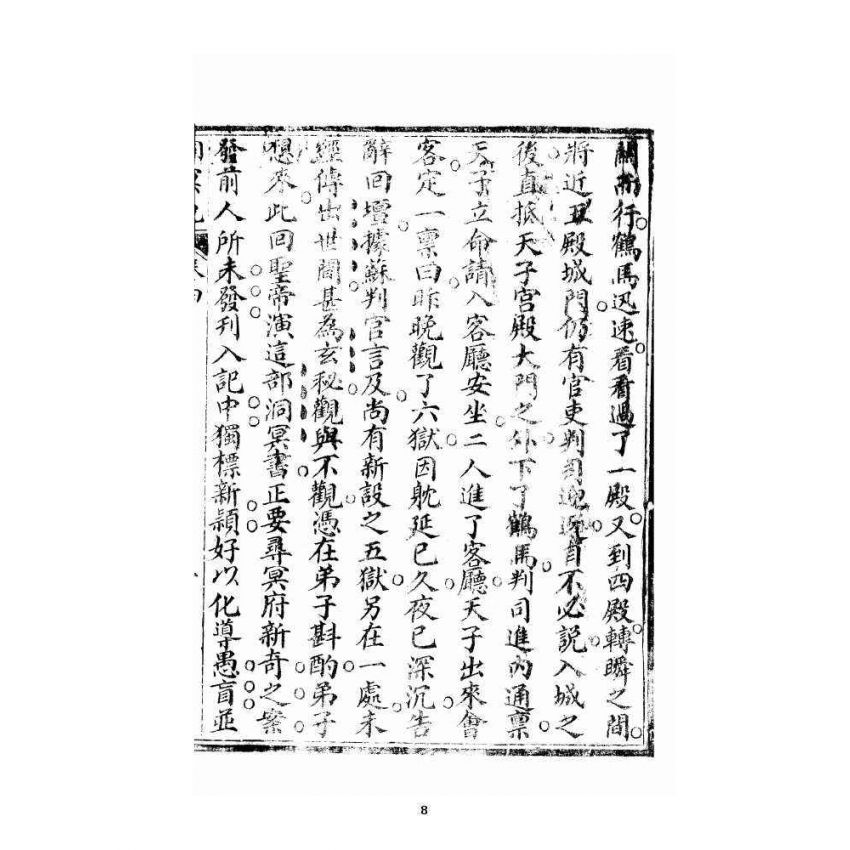 關而行鶴馬迅速看看過了一殿又到四殿轉瞬之間
將近五殿城門仍有官吏判司迎迓自不必説入城之
後直抵天子宫殿大門之外下了鶴馬判司進內通禀
天子立命請入客廳安坐二人進了客廳天子出來會
客定一禀曰昨晚觀了六獄因耽延已久夜已深沉告
辭回壇據蘇判官言及尚有新設之五獄另在一處未
經傳出世間甚為玄秘觀與不觀憑在弟子斟酌弟子
想來此回聖帝演這部洞冥書正要尋冥府新奇之案
發前人所未發刊入記中獨標新頴好以化導愚盲並
洞冥記 卷四
8